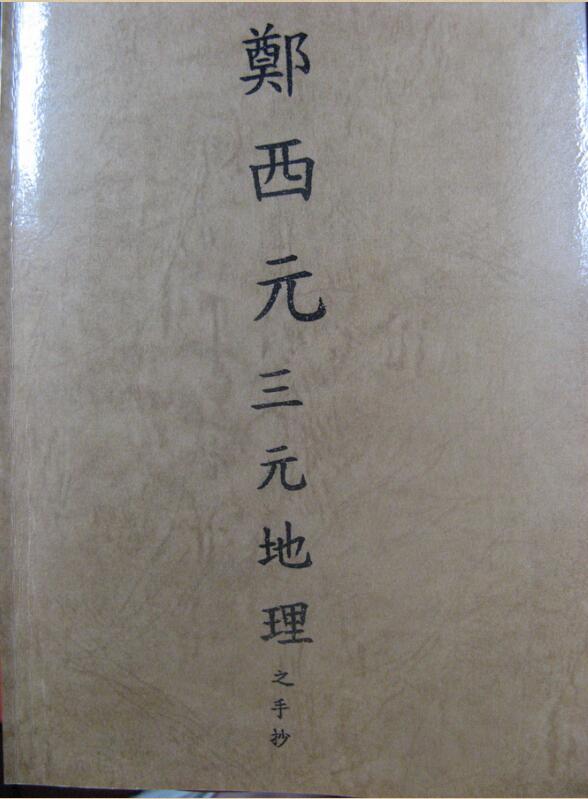 鄭西元三元地理之手抄